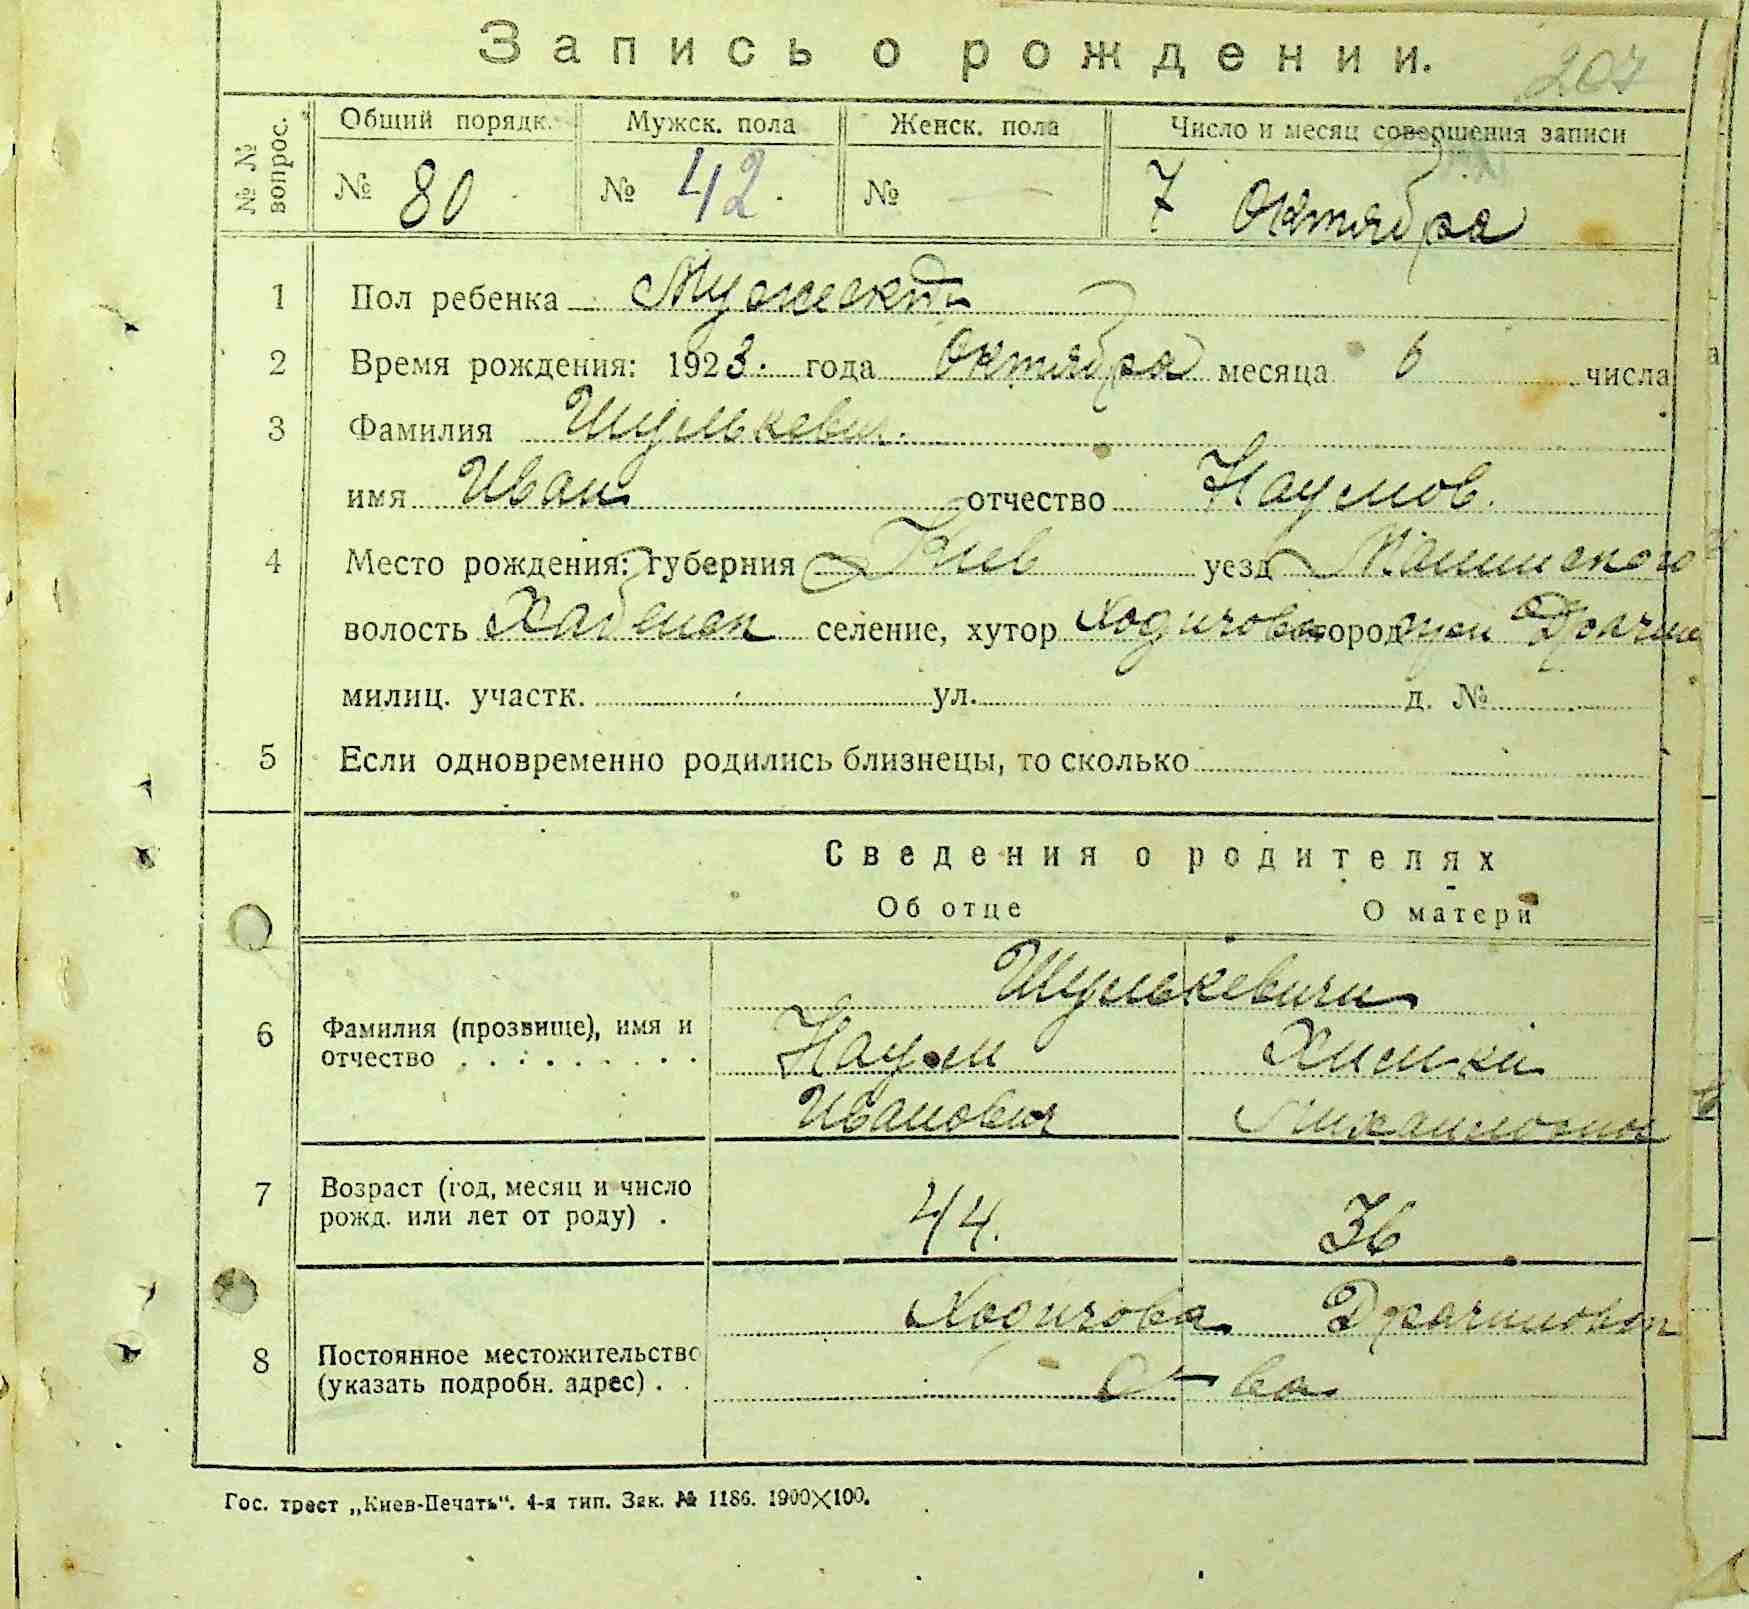 Запись о рождении.
207
№ № вопрос.
Общий порядк. Мужск. пола Женск. пола Число и месяц совершения записи
№ 80 № 42. № — 7 Октября
1 Пол ребенка Мужеск
2 Время рождения: 1923. года Октября месяца 6 числа
3 Фамилия Шулькевич.
имя Иван отчество Наумов.
4 Место рождения: губерния Киев уезд
волость Хабенск селение, хутор Ходичова город
милиц. участк. ул. д. №
5 Если одновременно родились близнецы, то сколько
Сведения о родителях
Об отце О матери
Шулькевичи
6 Фамилия (прозвище), имя и отчество Наум
Иванович
7 Возраст (год, месяц и число рожд. или лет от роду) . 44. 36
Ходичова
8 Постоянное местожительство (указать подробн. адрес) . .
Гос. трест „Киев-Печать“. 4-я тип. Зак. № 1186. 1900×100.